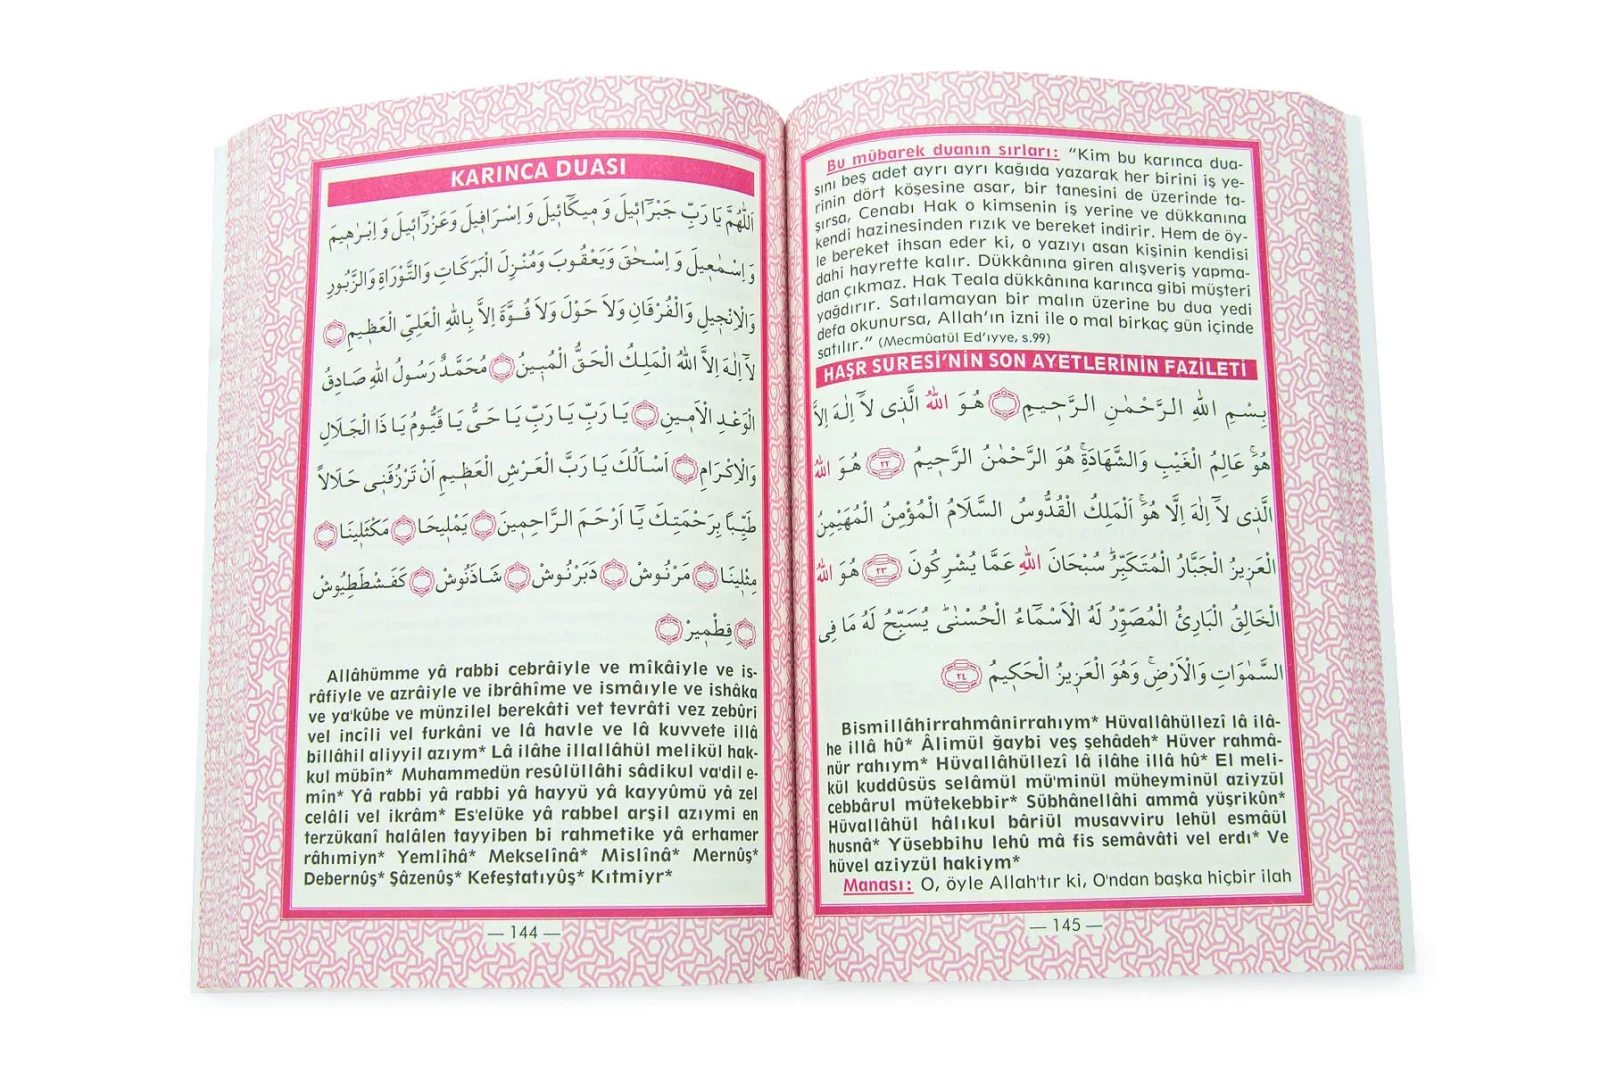 KARINCA DUASI
اَللّٰهُمَّ يَا رَبِّ جَبْرَٓائِيلَ وَ مِيكَٓائِيلَ وَ اِسْرَافِيلَ وَعَزْرَٓائِيلَ وَ اِبْرٰهِيمَ
وَ اِسْمٰعِيلَ وَ اِسْحٰقَ وَيَعْقُوبَ وَمُنْزِلَ الْبَرَكَاتِ وَالتَّوْرَاةِ وَالزَّبُورِ
وَالْاِنْجِيلِ وَالْفُرْقَانِ وَلَا حَوْلَ وَلَا قُوَّةَ اِلَّا بِاللّٰهِ الْعَلِيِّ الْعَظِيمِ
لَٓا اِلٰهَ اِلَّا اللّٰهُ الْمَلِكُ الْحَقُّ الْمُبِينُ مُحَمَّدٌ رَسُولُ اللّٰهِ صَادِقُ
الْوَعْدِ الْاَمِينِ يَا رَبِّ يَا رَبِّ يَا حَىُّ يَا قَيُّومُ يَا ذَا الْجَلَالِ
وَالْاِكْرَامِ اَسْاَلُكَ يَا رَبَّ الْعَرْشِ الْعَظِيمِ اَنْ تَرْزُقَنِى حَلَالًا
طَيِّبًا بِرَحْمَتِكَ يَٓا اَرْحَمَ الرَّاحِمِينَ يَمْلِيخَا مَكْثَلِينَا
مِثْلِينَا مَرْنُوشْ دَبَرْنُوشْ شَاذَنُوشْ كَفَشْطَطِيُوشْ
قِطْمِيرْ
Allâhümme yâ rabbi cebrâiyle ve mîkâiyle ve is-
râfiyle ve azrâiyle ve ibrâhîme ve ismâıyle ve ishâka
ve ya'kûbe ve münzilel berekâti vet tevrâti vez zebûri
vel incîli vel furkâni ve lâ havle ve lâ kuvvete illâ
billâhil aliyyil azıym* Lâ ilâhe illallâhül melikül hak-
kul mübîn* Muhammedün resûlüllâhi sâdikul va'dil e-
mîn* Yâ rabbi yâ rabbi yâ hayyü yâ kayyûmü yâ zel
celâli vel ikrâm* Es'elüke yâ rabbel arşil azıymi en
terzükanî halâlen tayyiben bi rahmetike yâ erhamer
râhımiyn* Yemlîhâ* Mekselînâ* Mislînâ* Mernûş*
Debernûş* Şâzenûş* Kefeştatıyûş* Kıtmiyr*
— 144 —
Bu mübarek duanın sırları: “Kim bu karınca dua-
sını beş adet ayrı ayrı kağıda yazarak her birini iş ye-
rinin dört köşesine asar, bir tanesini de üzerinde ta-
şırsa, Cenabı Hak o kimsenin iş yerine ve dükkanına
kendi hazinesinden rızık ve bereket indirir. Hem de öy-
le bereket ihsan eder ki, o yazıyı asan kişinin kendisi
dahi hayrette kalır. Dükkânına giren alışveriş yapma-
dan çıkmaz. Hak Teala dükkânına karınca gibi müşteri
yağdırır. Satılamayan bir malın üzerine bu dua yedi
defa okunursa, Allah’ın izni ile o mal birkaç gün içinde
satılır.” (Mecmûatül Ed’ıyye, s.99)
HAŞR SURESİ’NİN SON AYETLERİNİN FAZİLETİ
بِسْمِ اللّٰهِ الرَّحْمٰنِ الرَّحِيمِ هُوَ اللّٰهُ الَّذِى لَٓا اِلٰهَ اِلَّا
هُوَۚ عَالِمُ الْغَيْبِ وَالشَّهَادَةِۚ هُوَ الرَّحْمٰنُ الرَّحِيمُ ٢٢ هُوَ اللّٰهُ
الَّذِى لَٓا اِلٰهَ اِلَّا هُوَۚ اَلْمَلِكُ الْقُدُّوسُ السَّلَامُ الْمُؤْمِنُ الْمُهَيْمِنُ
الْعَزِيزُ الْجَبَّارُ الْمُتَكَبِّرُۜ سُبْحَانَ اللّٰهِ عَمَّا يُشْرِكُونَ ٢٣ هُوَ اللّٰهُ
الْخَالِقُ الْبَارِئُ الْمُصَوِّرُ لَهُ الْاَسْمَٓاءُ الْحُسْنٰىۜ يُسَبِّحُ لَهُ مَا فِى
السَّمٰوَاتِ وَالْاَرْضِۚ وَهُوَ الْعَزِيزُ الْحَكِيمُ ٢٤
Bismillâhirrahmânirrahıym* Hüvallâhüllezî lâ ilâ-
he illâ hû* Âlimül ğaybi veş şehâdeh* Hüver rahmâ-
nür rahıym* Hüvallâhüllezî lâ ilâhe illâ hû* El meli-
kül kuddûsüs selâmül mü'minül müheyminül aziyzül
cebbârul mütekebbir* Sübhânellâhi ammâ yüşrikûn*
Hüvallâhül hâlıkul bâriül musavviru lehül esmâül
husnâ* Yüsebbihu lehû mâ fis semâvâti vel erdı* Ve
hüvel aziyzül hakiym*
Manası: O, öyle Allah'tır ki, O'ndan başka hiçbir ilah
— 145 —